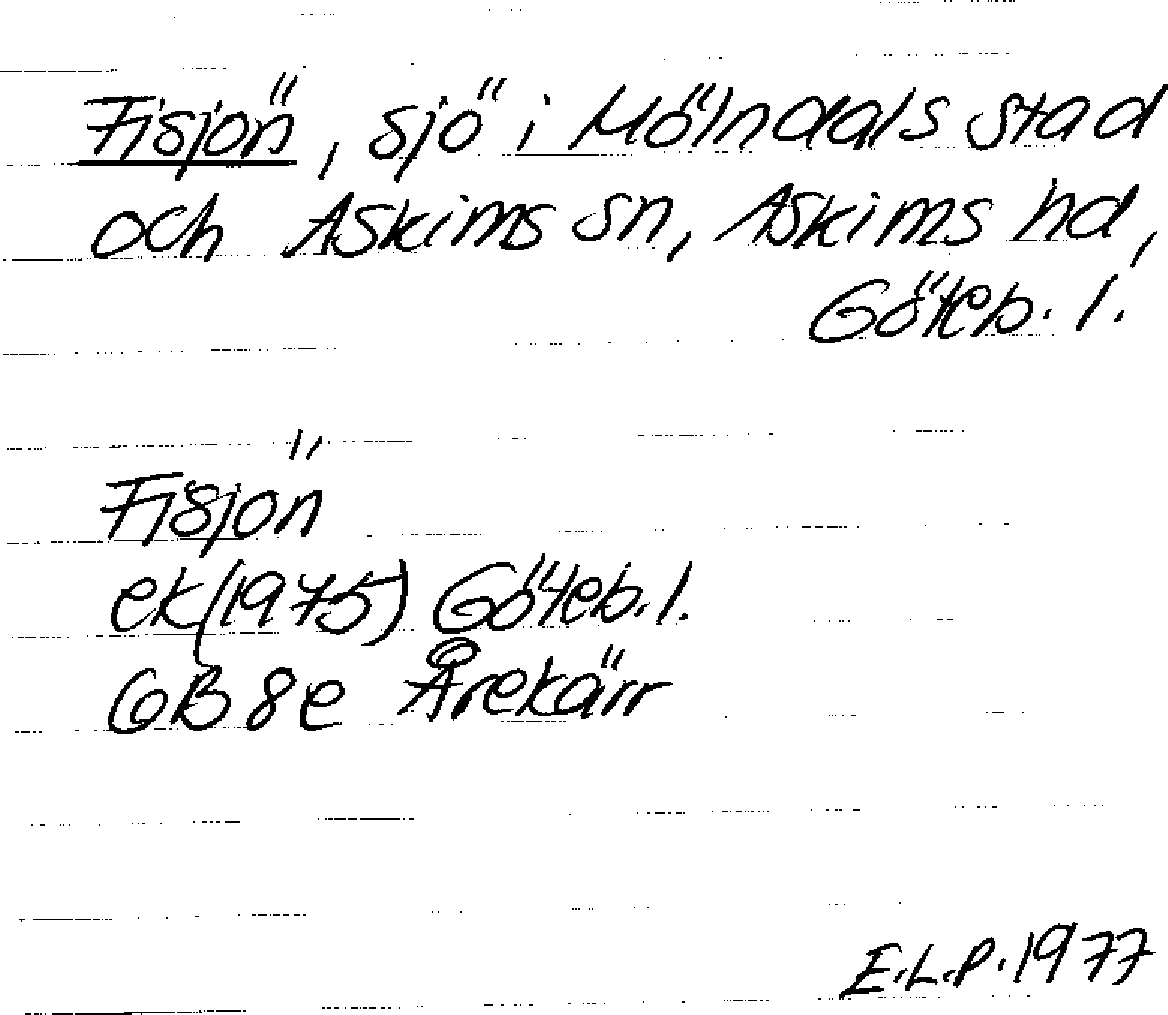 Fisjön, sjö i Mölndals stad
och Askims sn, Askims hd,
Göteb. l.
Fisjön
ek (1975) Göteb. l.
6B 8e Årekärr
E.L.P. 1977